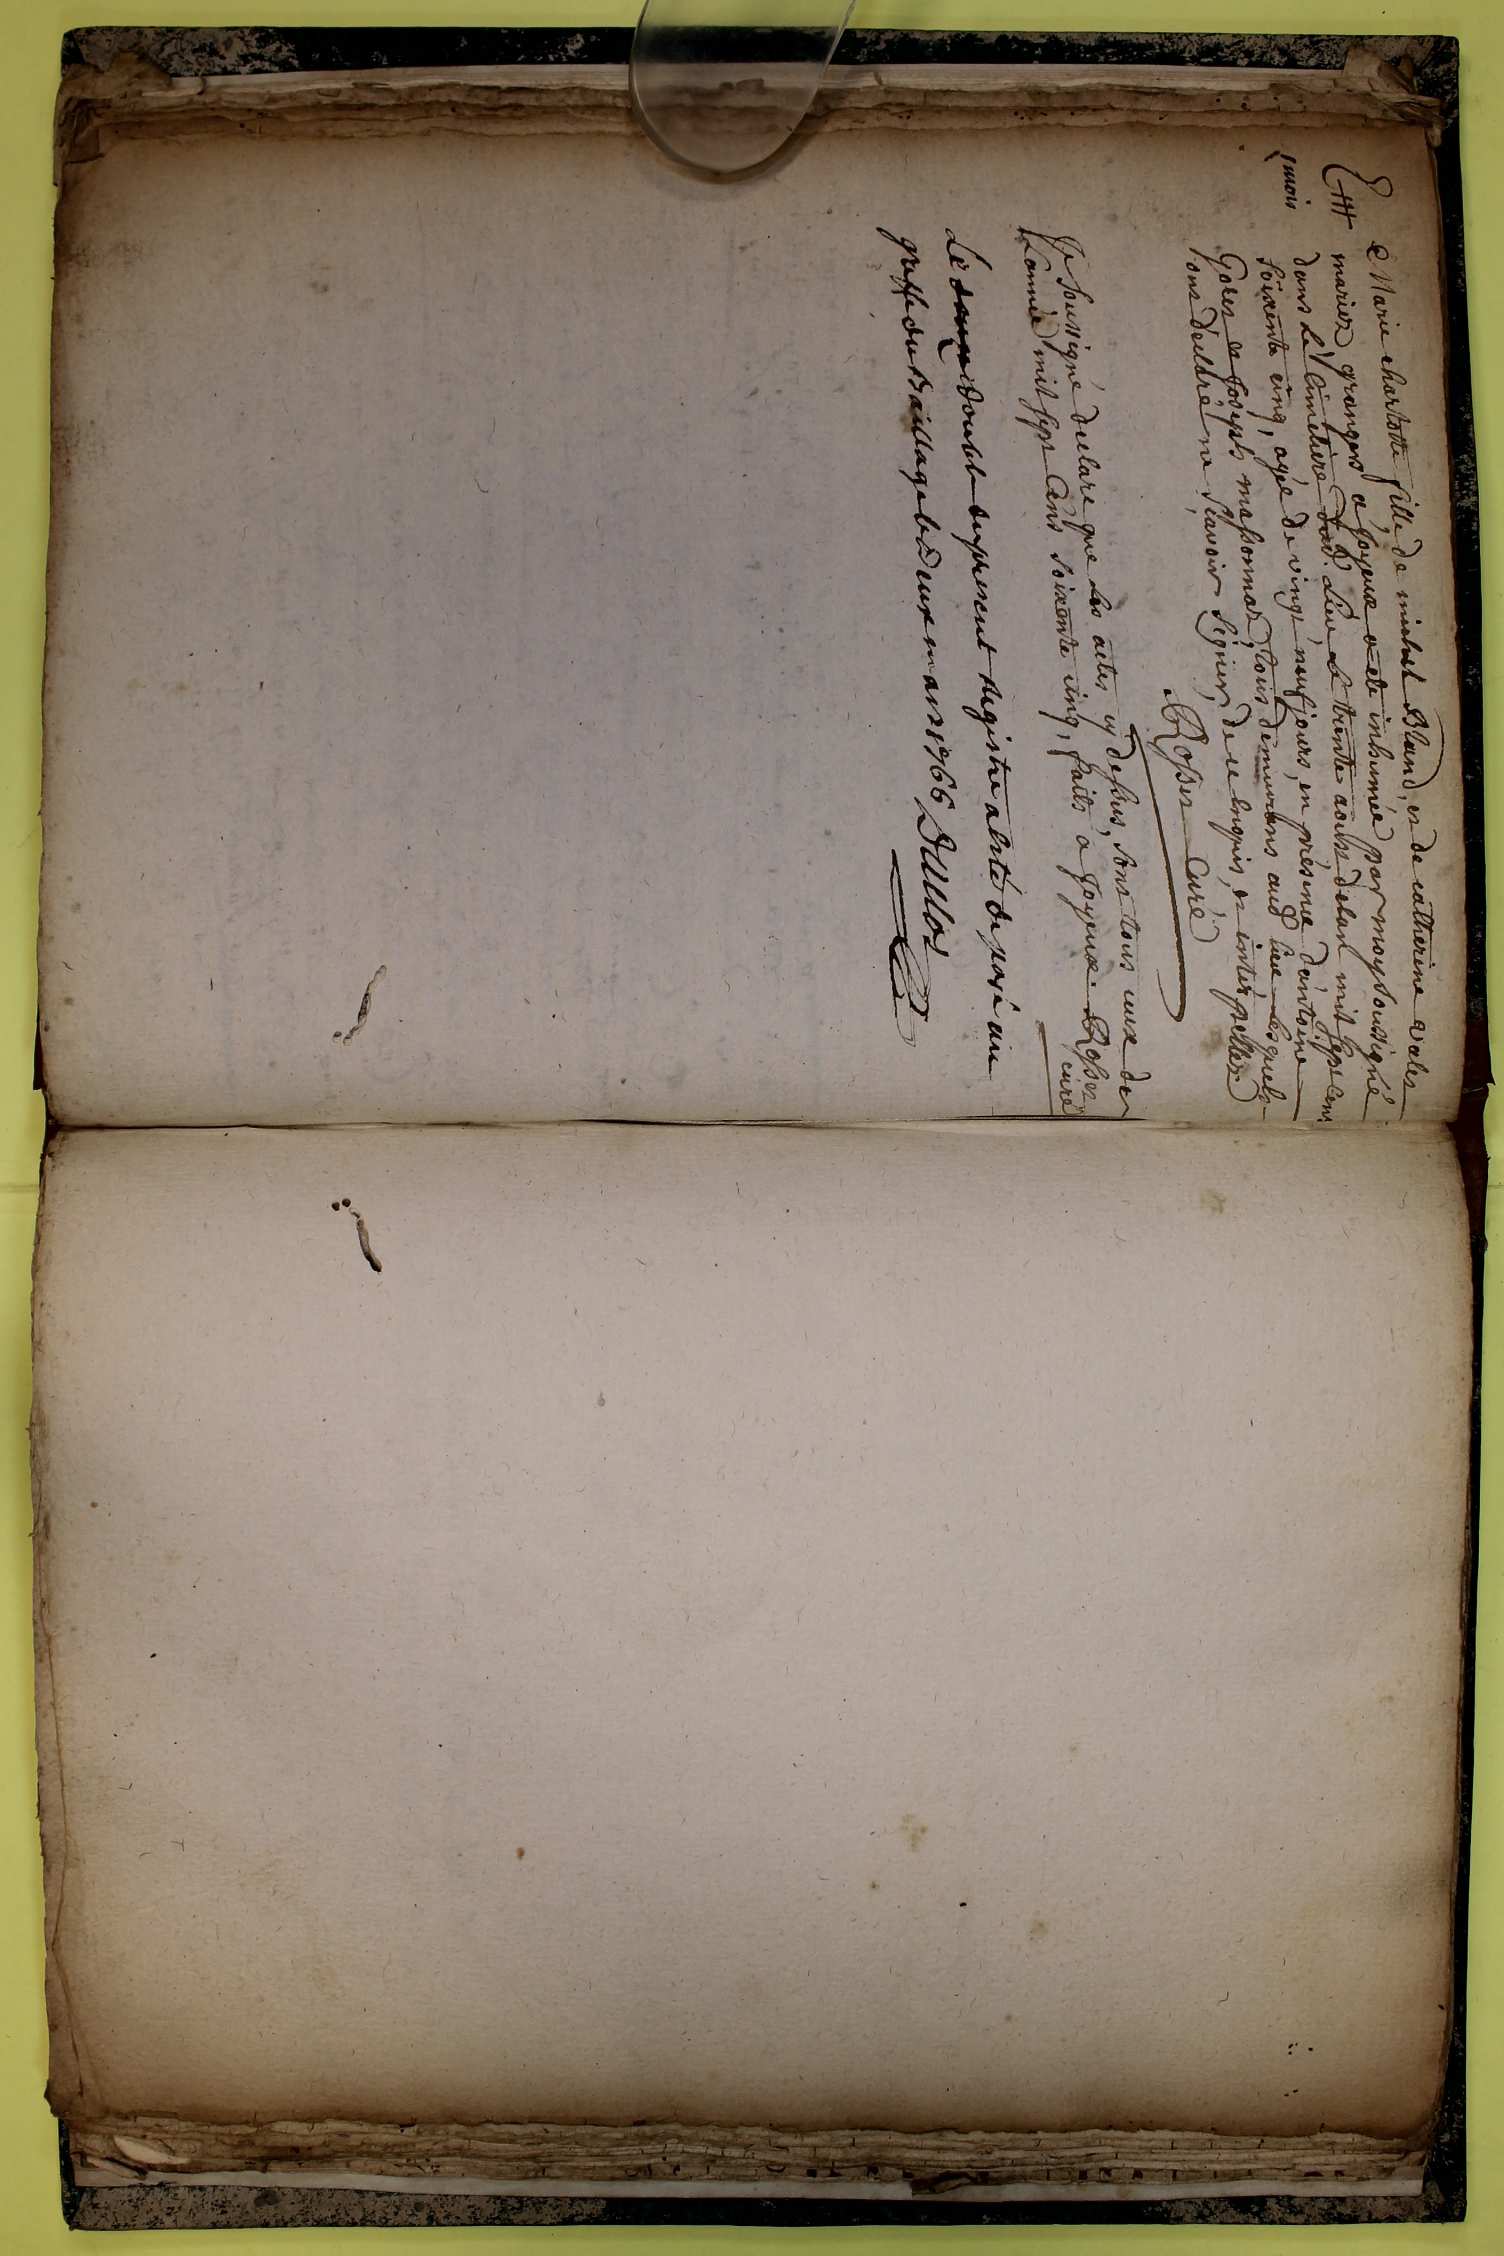 Ett
1 mois
Marie charlotte fille de michel Bland, et de catherine vales
mariez grangers a Joyeux a eté inhumée par moy soussigné
dans Le Cimetiere dud. Lieu Le trente aoust de lan mil sept cent
soixente cinq, agée de vingt neuf jours, en présence d'antoine
Gores et Joseph massonnas, tous demeurans aud lieu lesquels
ont déclaré ne sçavoir signer, de ce enquis, et interpellez
Rosset Curé
Je soussigné declare que Les actes cy dessus, sont tous ceux de
L'année mil sept Cens soixente cinq, faits a Joyeux. Rosset
curé
Le double du present Registre a été deposé au
greffe du Baillage le Deux mars 1766 Duclos